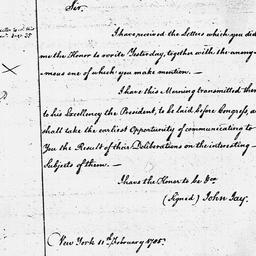 Sir,
I have received the Letters which you did
me the Honor to write Yesterday, together with the anony-
mous one of which you make mention. —
I have this Morning transmitted them
to his Excellency the President, to be laid before Congress, a
shall take the earliest Opportunity of communicating to
You the Result of their Deliberations on the interesting
Subjects of them. —
I have the Honor to be &ca
(signed) John Jay.
New York 11th February 1785.